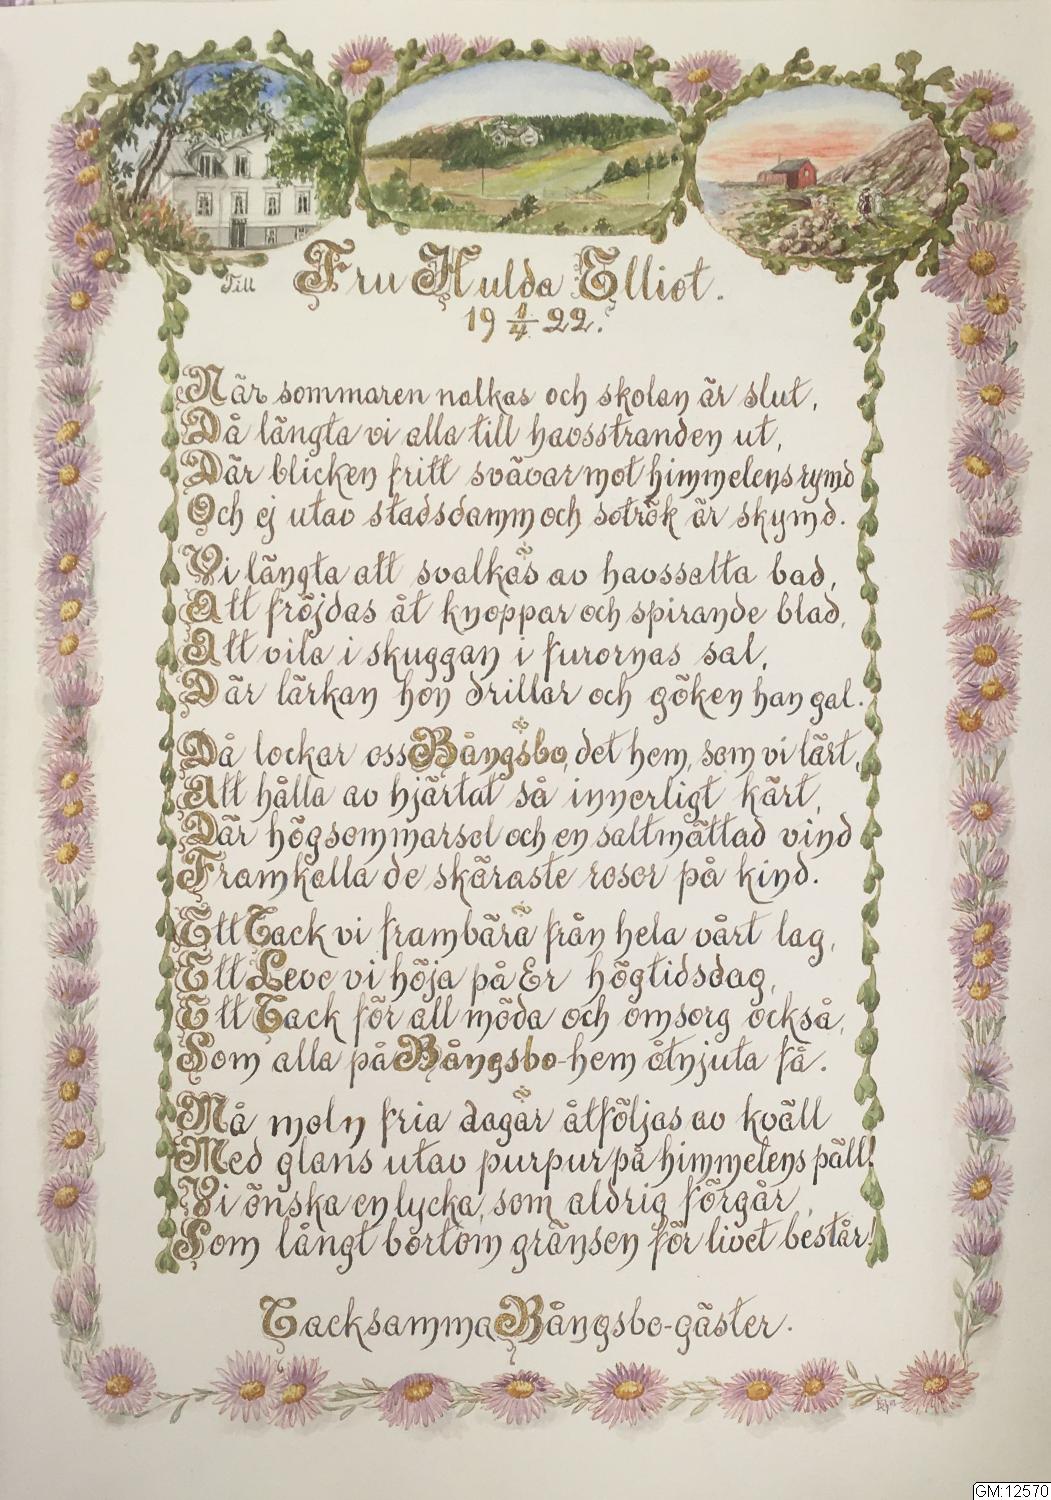 Till Fru Hulda Elliot.
19 1/4 22.
När sommaren nalkas och skolan är slut,
Då längta vi alla till havsstranden ut,
Där blicken fritt svävar mot himmelens rymd
Och ej utav stadsdamm och sotrök är skymd.
Vi längta att svalkas av havssalta bad,
Att fröjdas åt knoppar och spirande blad,
Att vila i skuggan i furornas sal,
Där lärkan hon drillar och göken han gal.
Då lockar oss Bångsbo, det hem, som vi lärt,
Att hålla av hjärtat så innerligt kärt,
Där högsommarsol och en saltmättad vind
Framkalla de skäraste rosor på kind.
Ett Tack vi frambära från hela vårt lag,
Ett Leve vi höja på Er högtidsdag,
Ett Tack för all möda och omsorg också,
Som alla på Bångsbo-hem åtnjuta få.
Må moln fria dagar åtföljas av kväll
Med glans utav purpur på himmelens päll!
Vi önska en lycka, som aldrig förgår,
Som långt bortom gränsen för livet består!
Tacksamma Bångsbo-gäster.
GM:12570